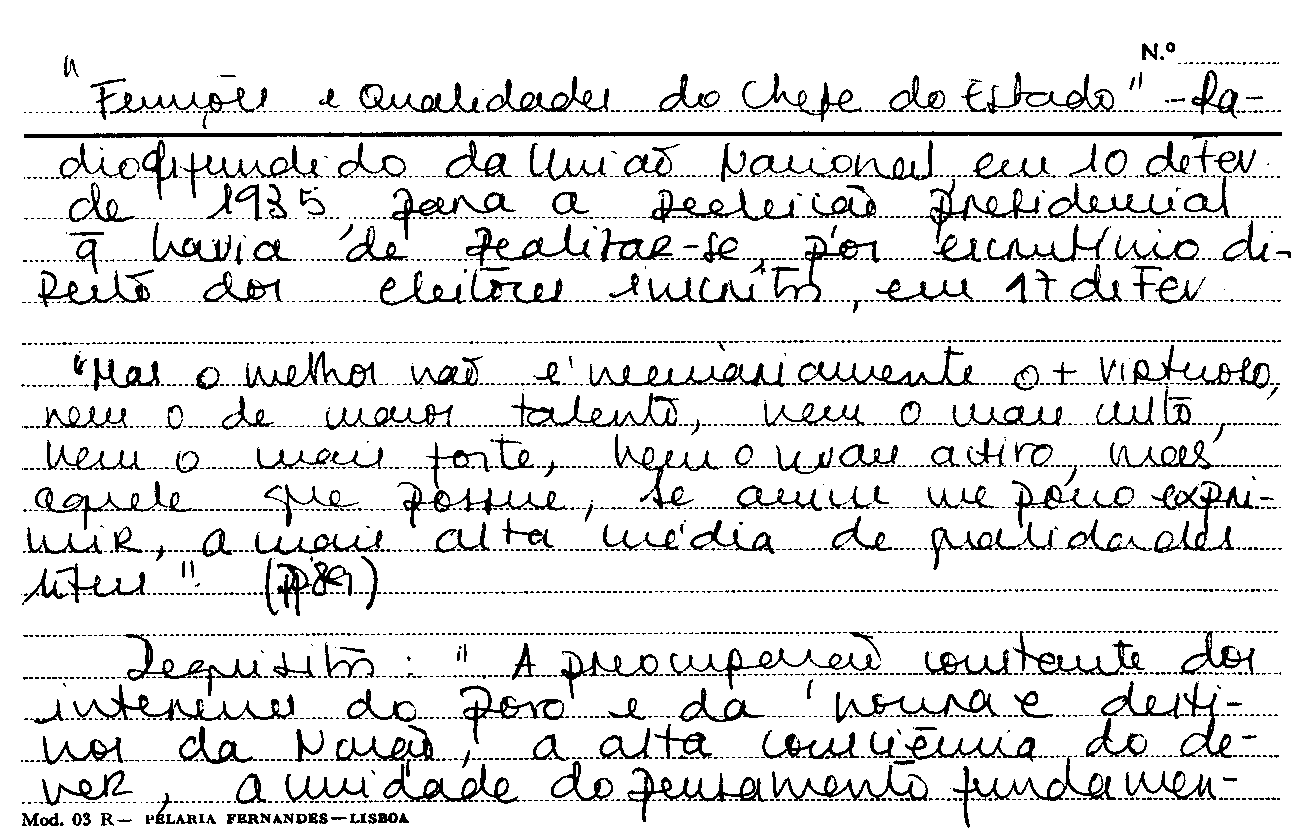 N.º
"Funções e Qualidades do Chefe do Estado" - Ra-
diodifundido da União Nacional em 10 de Fev
de 1935 para a reeleição presidencial
q̄ havia de realizar-se, por escrutínio di-
reito dos eleitores inscritos, em 17 de Fev
"Mas o melhor não é necessariamente o + virtuoso,
nem o de maior talento, nem o mais culto,
nem o mais forte, nem o mais activo, mas
aquele que possue, se assim me posso expri-
mir, a mais alta média de qualidades
úteis". (p 89)
Requisitos: "A preocupação constante dos
interesses do povo e da honra e desti-
nos da Nação, a alta consciência do de-
ver, a unidade do pensamento fundamen-
Mod. 03 R — PELARIA FERNANDES — LISBOA